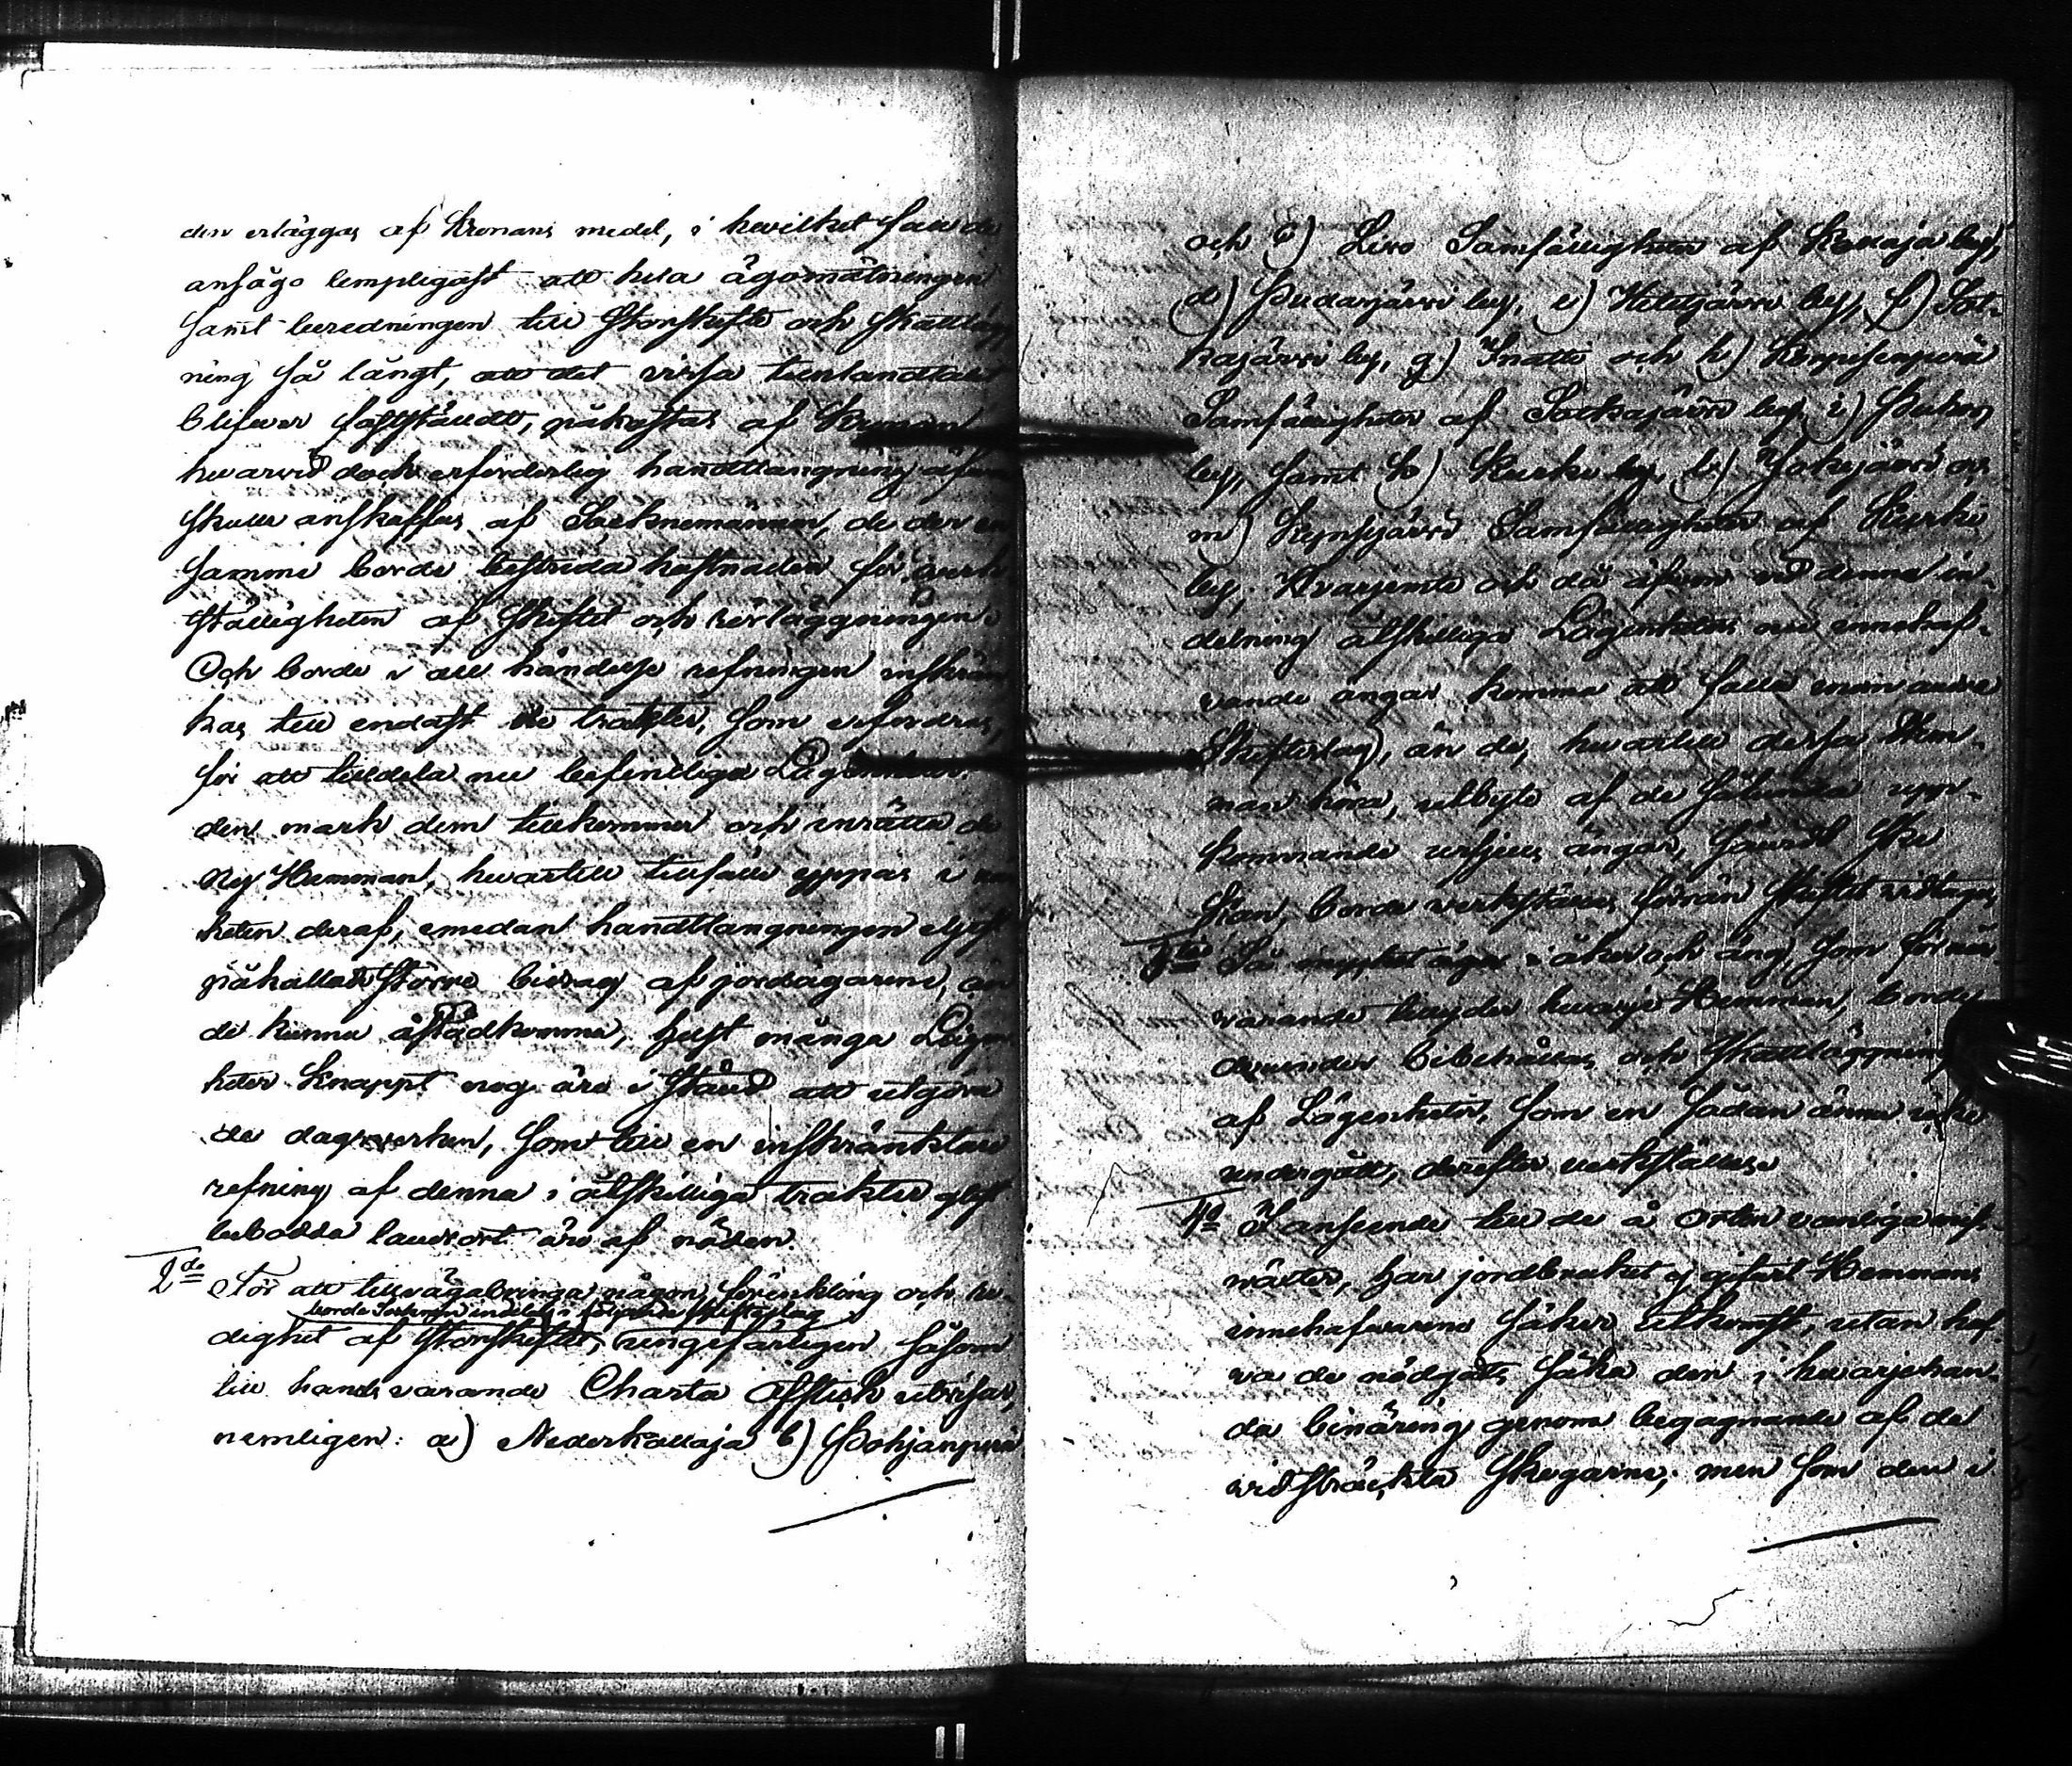 den erläggas af Kronans medel, i hwilket fall de
ansågo lempligast att hela ägomätningen
samt beredningen till Storskifte och Skattlägg
ning så långt, att det wissa
blifwer fastställdt, påkostas af Kronan
hwarwid dock erforderlig handtlangning äfwen
skulle anskaffas af Socknemännen, de der en
samme borde bestrida kostnaden för werk
ställigheten af Skiftet och rörläggningen.
Och borde i all händelse refningen inskrän
kas till endast de trakter, som erfordras,
för att tilldela nu befintliga Lägenheter
den mark dem tillkommer och inrätta de
Ny Hemman, hwartill tillfälle yppas i
heten deraf, emedan handtlangningen eljest
påkallade större bidrag af jordägarene, än
de kunna åstadkomma, helst många Lägen
heter knappt nog äro i stånd att utgöra
de dagswerken, som till en inskränktare
refning af denna i åtskilliga trakter glest
bebodda landsort äro af nöden.
2do För att tillwägabringa någon förenkling och re-
borde Socknen indelas i följande skifteslag
dighet af Storskiftet, ungefärligen såsom
till hands warande Charta Afftich utwisar,
nemligen: a) Nederkollaja b) Pohjanperä
och c) Liwo Samfälligheter af Kollaja by,
d) Pudasjärwi by, e) Hetejärwi by, f) Sot-
kajärwi by, g) Inatti och h) Korpisenperä
Samfälligheter af Sotkajärwi by, i) Puhos
by, samt k) Kurki by, l) Jokijärwi och
m) Kynsijärwi Samfälligheter af Kurki
by, Hwarjemte och då äfwen wid denna in-
delning åtskilliga Lägenheters nu innehaf-
wande ängar komma att falla inom andre
Skifteslag, än de, hwartill dessa Hem-
man höra, utbyte af de sålunda upp-
kommande urfjells ängar, såwidt ske
kan, borde werkställas, förrän Skiftet widtages,
3tio Så mycket ägor i åker och äng, som för när-
warande tillyder hwarje Hemman, borde
derunder bibehållas, och Skattläggning
af Lägenheter, som en sådan ännu icke
undergått, derefter werkställas.
4o I anseende till de å orten wanliga miss-
wäxter, har jordbruket ej gifwit Hemmans
innehafwarene säker utkomst, utan haf-
wa de nödgats söka den i hwarjehan-
da binäring genom begagnande af de
widsträckta skogarne; men som den i